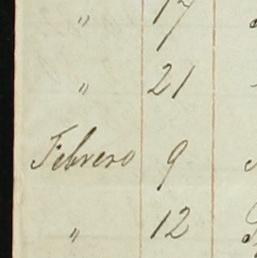 " 17
" 21
Febrero 9
" 12